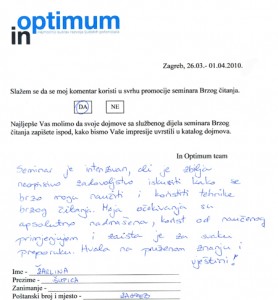 in optimum
Zagreb, 26.03.- 01.04.2010.
Slažem se da se moj komentar koristi u svrhu promocije seminara Brzog čitanja.
DA NE
Najljepše Vas molimo da svoje dojmove sa službenog dijela seminara Brzog
čitanja zapišete ispod, kako bismo Vaše impresije uvrstili u katalog dojmova.
In Optimum team
Seminar je intenzivan, ali je zbilja
neopisivo zadovoljstvo iskusiti kako se
brzo mogu naučiti i koristiti tehnike
brzog čitanja. Moja očekivanja su
apsolutno nadmašena, korist od naučenog
primjenjujem i zaista je za svaku
preporuku. Hvala na pruženom znanju i
vještini!
Ime - ŽAKLINA
Prezime - ŠUPICA
Zanimanje -
Poštanski broj i mjesto - ZAGREB